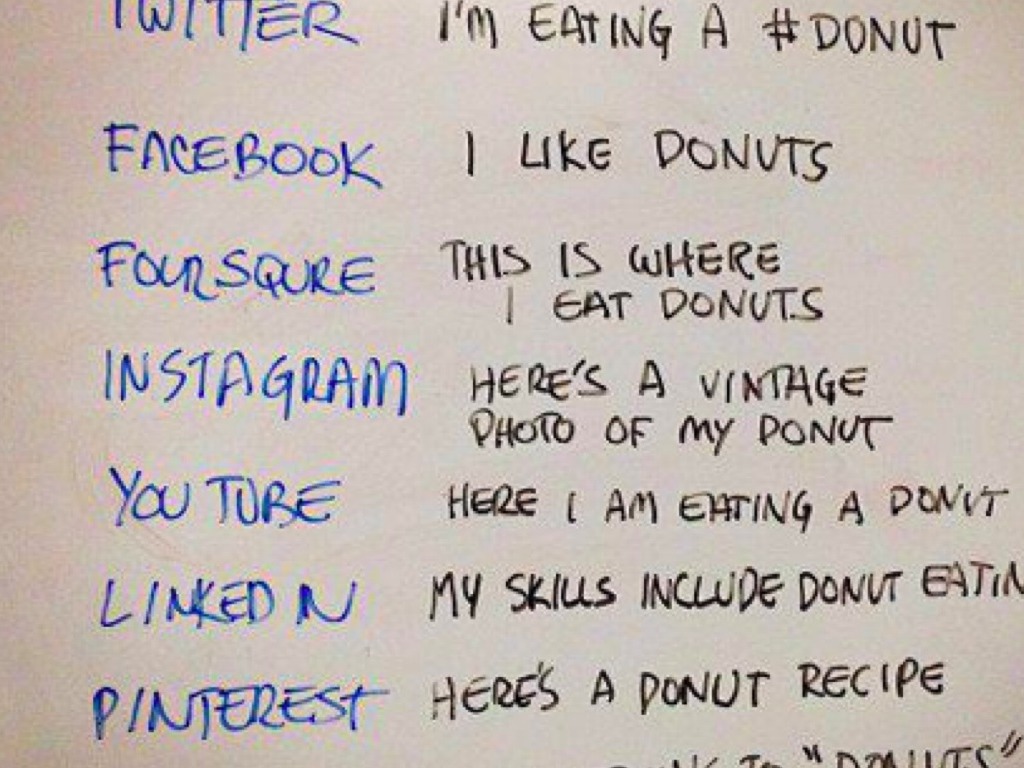 TWITTER I'M EATING A #DONUT
FACEBOOK I LIKE DONUTS
FOURSQURE THIS IS WHERE
I EAT DONUTS
INSTAGRAM HERE'S A VINTAGE
PHOTO OF MY DONUT
YOU TUBE HERE I AM EATING A DONUT
LINKED IN MY SKILLS INCLUDE DONUT EATIN
PINTEREST HERE'S A DONUT RECIPE
TO "DONUTS"